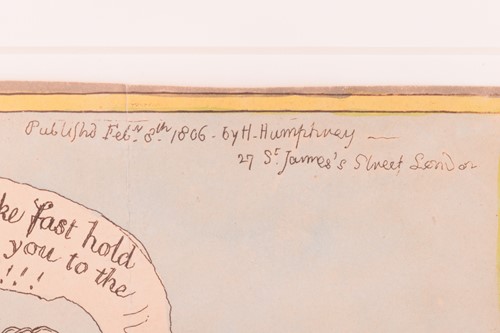 Publishd Feb.y 8th 1806 - by H. Humphrey —
27 St. James's Street London
ke fast hold
you to the
!!!